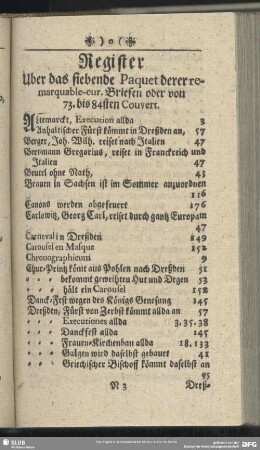 ) o (
Register
Uber das siebende Paquet derer re-
marquable-cur. Briefen oder von
73. bis 84sten Couvert.
Altemarckt, Execution allda 3
Anhaltischer Fürst kömmt in Dreßden an, 57
Berger, Joh. Wilh. reiset nach Italien 47
Bertmann Gregorius, reiset in Franckreich und
Italien 47
Beutel ohne Nath, 43
Brauen in Sachsen ist im Sommer anzuordnen
116
Canons werden abgefeuert 176
Carlowitz, Georg Carl, reiset durch gantz Europam
47
Carneval in Dreßden 149
Carousel en Masque 152
Chronographicum 9
Chur-Printz kömt aus Pohlen nach Dreßden 51
= = = bekommt geweiheten Hut und Degen 53
= = = hält ein Carousel 152
Danck-Fest wegen des Königs Genesung 145
Dreßden, Fürst von Zerbst kömmt allda an 57
= = = Executiones allda 3. 35. 38
= = = Danckfest allda 145
= = = Frauen-Kirchenbau allda 18. 133
= = = Galgen wird daselbst gebauet 41
= = = Griechischer Bischoff kömmt daselbst an
95
N 3 Dreß-
SLUB
DFG